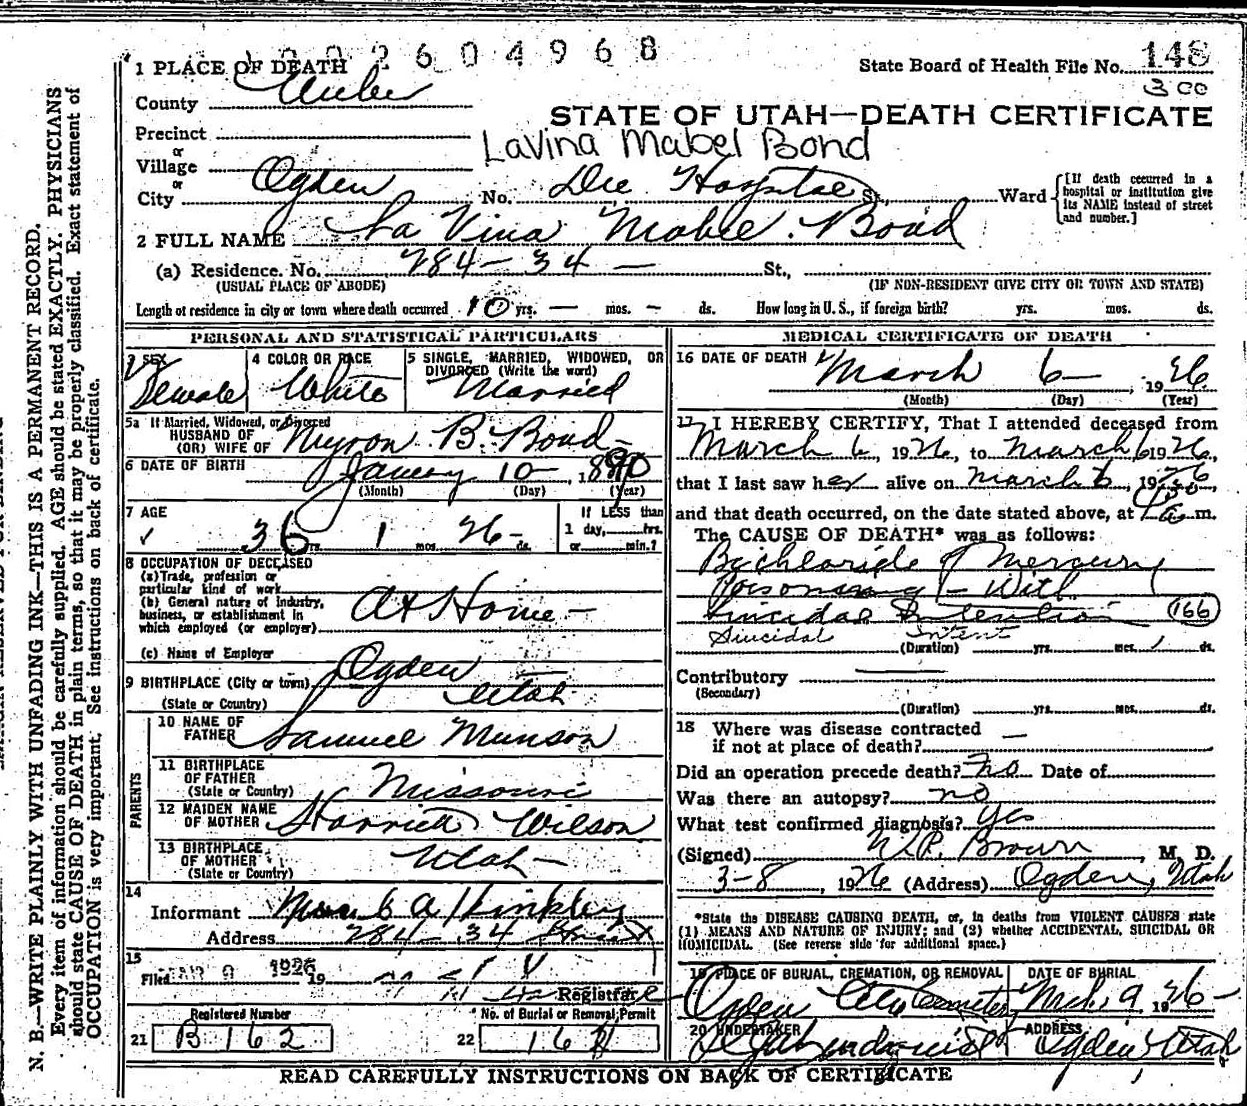 2604968
1 PLACE OF DEATH
State Board of Health File No. 148
300
County Weber
STATE OF UTAH—DEATH CERTIFICATE
Precinct
LaVina Mabel Bond
or
Village
or
City Ogden No. Dee Hospital St., Ward
[If death occurred in a hospital or institution give its NAME instead of street and number.]
2 FULL NAME La Vina Mable Bond
(a) Residence. No. 284 - 34 — St.,
(USUAL PLACE OF ABODE) (IF NON-RESIDENT GIVE CITY OR TOWN AND STATE)
Length of residence in city or town where death occurred 10 yrs. — mos. — ds. How long in U. S., if foreign birth? yrs. mos. ds.
PERSONAL AND STATISTICAL PARTICULARS
3 SEX
Female
4 COLOR OR RACE
White
5 SINGLE, MARRIED, WIDOWED, OR
DIVORCED (Write the word)
Married
5a If Married, Widowed, or Divorced
HUSBAND OF
(OR) WIFE OF Myron B. Bond -
6 DATE OF BIRTH January 10 - , 1890
(Month) (Day) (Year)
7 AGE
36 yrs. 1 mos. 26 - ds.
If LESS than
1 day, hrs.
or min.?
8 OCCUPATION OF DECEASED
(a) Trade, profession or
particular kind of work
(b) General nature of Industry,
business, or establishment in
which employed (or employer) At Home -
(c) Name of Employer
9 BIRTHPLACE (City or town) Ogden
(State or Country) Utah
PARENTS
10 NAME OF
FATHER Samuel Munson
11 BIRTHPLACE
OF FATHER
(State or Country) Missouri
12 MAIDEN NAME
OF MOTHER Harriett Wilson
13 BIRTHPLACE
OF MOTHER
(State or Country) Utah -
14
Informant Hinkley
Address 284 - 34
15
Filed MAR 9 1926 19
Registrar
Registered Number
21 B 162
No. of Burial or Removal Permit
22
MEDICAL CERTIFICATE OF DEATH
16 DATE OF DEATH March 6 - , 1926
(Month) (Day) (Year)
17 I HEREBY CERTIFY, That I attended deceased from
March 6, 1926, to March 6 1926,
that I last saw her alive on March 6, 1926,
and that death occurred, on the date stated above, at m.
The CAUSE OF DEATH* was as follows:
Bichloride of Mercury
Poisoning - With
Suicidal Intention 166
Suicidal Intent
(Duration) yrs. mos. 1 ds.
Contributory
(Secondary)
(Duration) yrs. mos. ds.
18 Where was disease contracted
if not at place of death? —
Did an operation precede death? No Date of
Was there an autopsy? no
What test confirmed diagnosis? yes
(Signed) Brown, M. D.
3-8, 1926 (Address) Ogden, Utah
*State the DISEASE CAUSING DEATH, or, in deaths from VIOLENT CAUSES state
(1) MEANS AND NATURE OF INJURY; and (2) whether ACCIDENTAL, SUICIDAL OR
HOMICIDAL. (See reverse side for additional space.)
19 PLACE OF BURIAL, CREMATION, OR REMOVAL
Ogden City Cemetery
DATE OF BURIAL
Mch. 9 1926 -
20 UNDERTAKER
ADDRESS
Ogden, Utah
READ CAREFULLY INSTRUCTIONS ON BACK OF CERTIFICATE
N. B.—WRITE PLAINLY WITH UNFADING INK—THIS IS A PERMANENT RECORD.
Every item of information should be carefully supplied. AGE should be stated EXACTLY. PHYSICIANS
should state CAUSE OF DEATH in plain terms, so that it may be properly classified. Exact statement of
OCCUPATION is very important. See instructions on back of certificate.